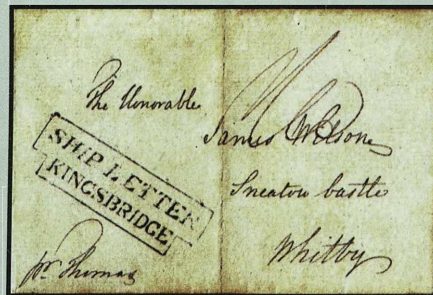 The Honorable
James Wilson
Sneaton Castle
Whitby
SHIP LETTER
KINGSBRIDGE
pr Thomas